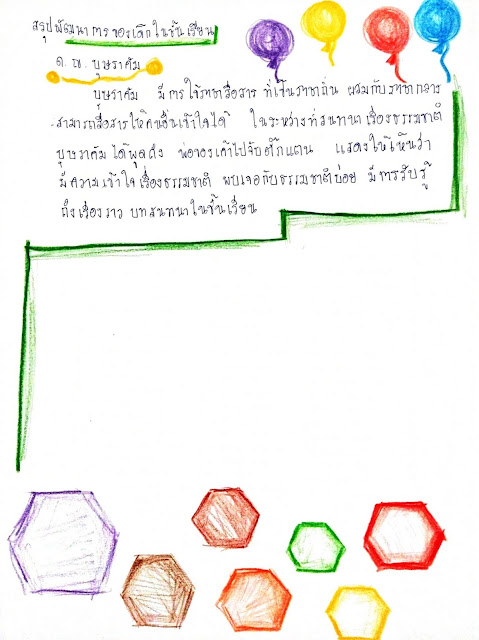 สรุปพัฒนาการของเด็กในชั้นเรียน
ด.ญ. บุษราคัม
บุษราคัม มีการใช้ภาษาสื่อสาร ที่เป็นภาษาถิ่น ผสมกับภาษากลาง
สามารถสื่อสารให้คนอื่นเข้าใจได้ ในระหว่างที่สนทนาเรื่องธรรมชาติ
บุษราคัมได้พูดถึง พ่อของเค้าไปจับตั๊กแตน แสดงให้เห็นว่า
มีความเข้าใจเรื่องธรรมชาติ พบเจอกับธรรมชาติบ่อย มีการรับรู้
ถึงเรื่องราว บทสนทนาในชั้นเรียน